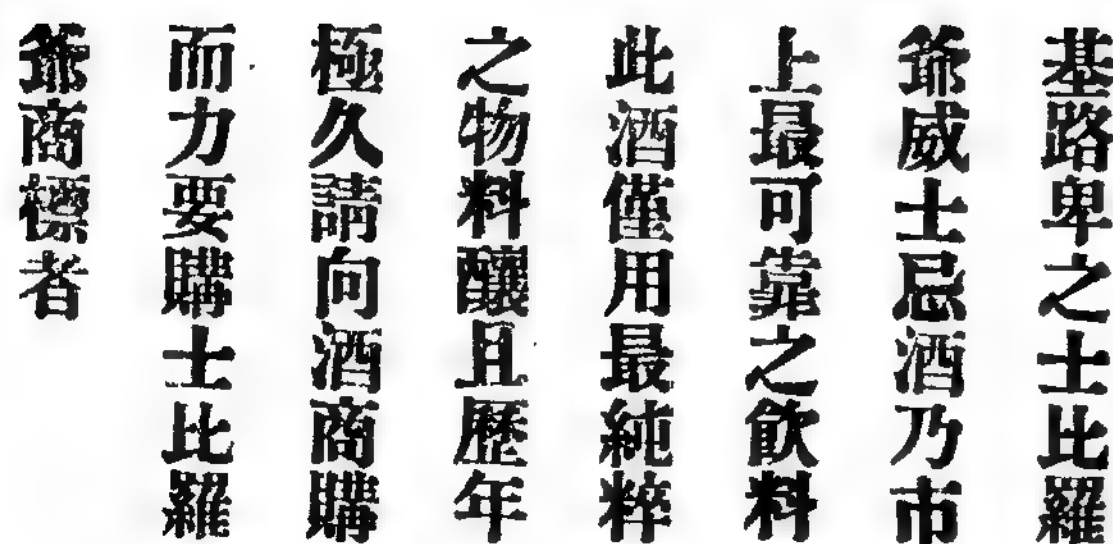 基路卑之士比羅
爺威士忌酒乃市
上最可靠之飲料
此酒僅用最純粹
之物料釀且歷年
極久請向酒商購
而力要購士比羅
爺商標者